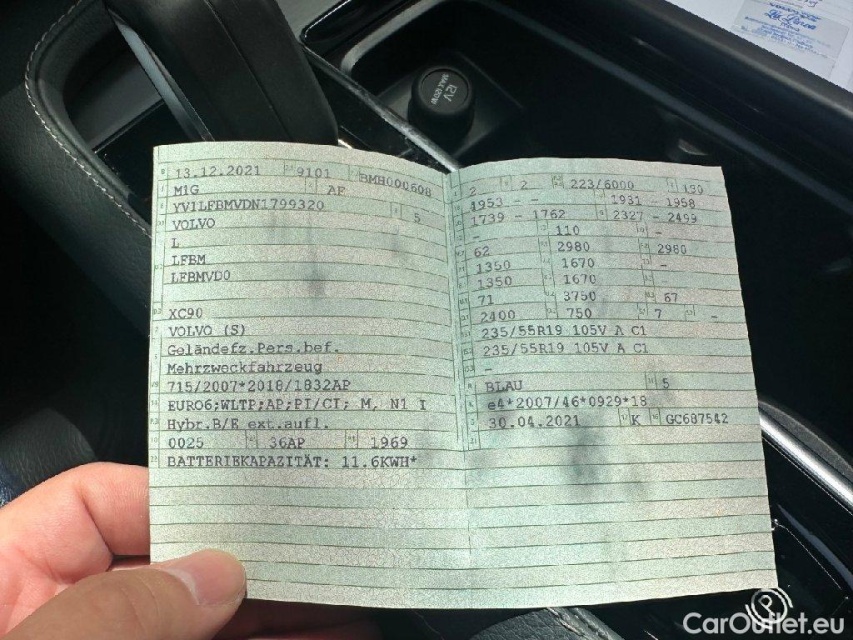 12V
MAX 120W
13.12.2021 9101 BMH000608
M1G AF
YV1LFBMVDN1799320 5
VOLVO
L
LFBM
LFBMVD0
XC90
VOLVO (S)
Geländefz.Pers.bef.
Mehrzweckfahrzeug
715/2007*2018/1832AP
EURO6;WLTP;AP;PI/CI; M, N1 I
Hybr.B/E ext.aufl.
0025 36AP 1969
BATTERIEKAPAZITÄT: 11.6KWH*
2 2 223/6000
4953 - - 1931 - 1958
1739 - 1762 2327 - 2499
- 110 -
62 2980 2980
1350 1670 -
1350 1670
71 3750 67
2400 750 7 -
235/55R19 105V A C1
235/55R19 105V A C1
-
BLAU 5
e4*2007/46*0929*18
30.04.2021 K GC687542
CarOutlet.eu